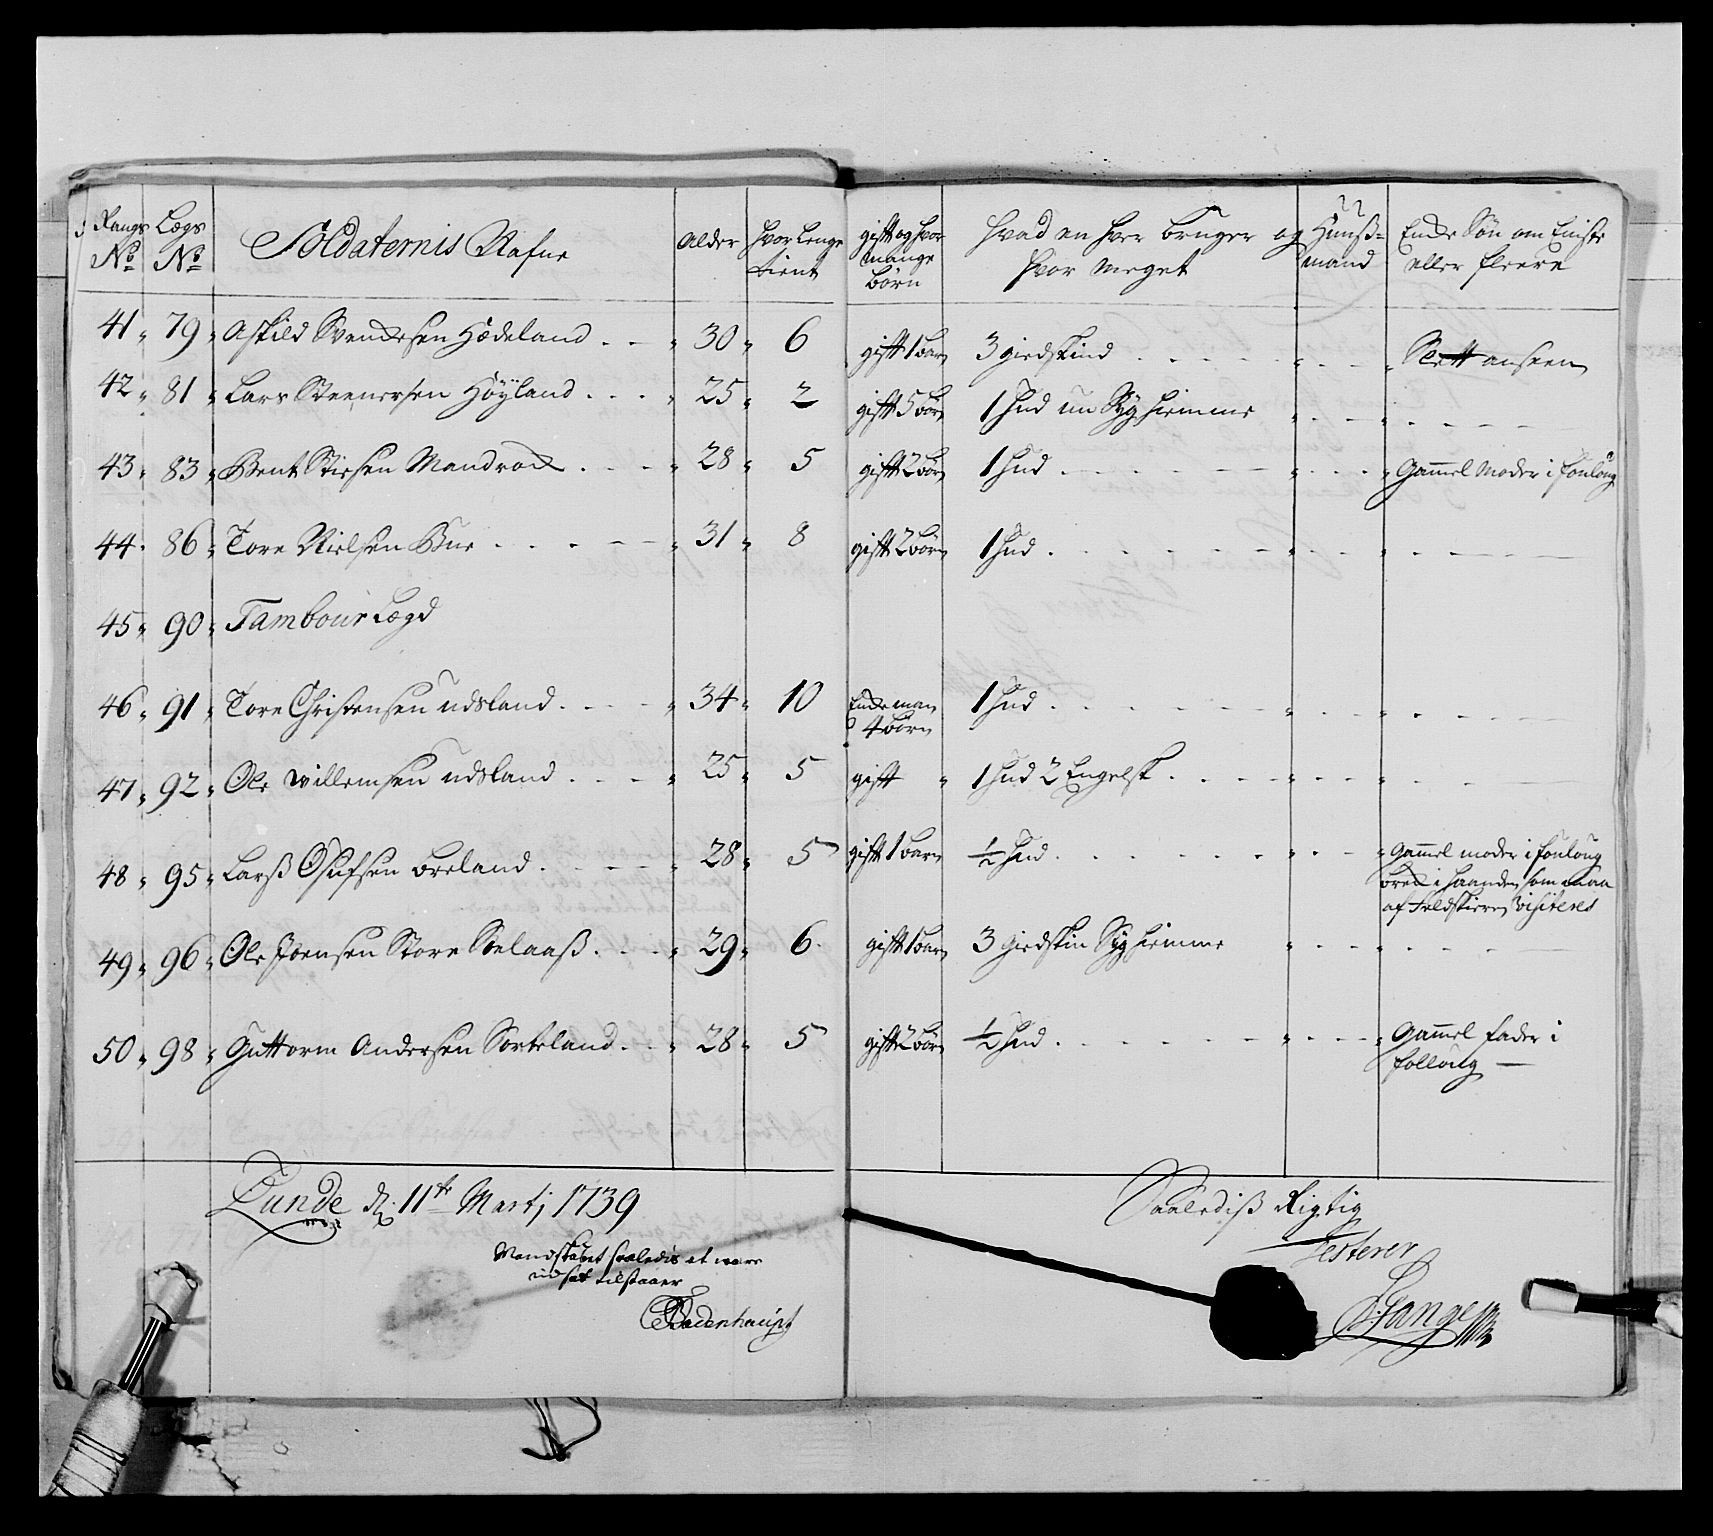 Rangs No Lægs No Soldaternis Nafne Alder hvor lenge tient gift og hvor mange børn hvad en hver bruger og hvor meget Huuß=mand Eene Søn om Eniste eller fleere
41 79 Askild Svendsen Hædeland 30 6 gift 1 barn 3 giedskind
42 81 Lars Steenersen Høÿland 25 2 gift 5 børn 1 hud nu Syg hiemme
43 83 Bent Stiesen Mandrod 28 5 gift 2 børn 1 hud Gammel Moder i folloug
44 86 Tore Nielsen Bue 31 8 gift 2 børn 1 hud
45 90 Tambour Lægd
46 91 Tore Christensen udsland 34 10 Enke man 4 børn 1 hud
47 92 Ole Willemsen udsland 25 5 gift 1 hud 2 Engelsk
48 95 Larß Osufsen breland 28 5 gift 1 barn ½ hud Gammel moder i folloug
brek i haanden som maa
af Feldskieren visiteres
49 96 Ole Joensen Store 29 6 gift 1 barn 3 giedskin Syg hiemme
50 98 Guttorm Andersen Sorteland 28 5 gift 2 børn ½ hud Gammel fader i
folloug
Lunde d. 11te Martj 1739
Mandskabet saaledis at være
udsat tilstaaer
Bodenhaupt
Saalediß Rigtig
Testerer
Stange